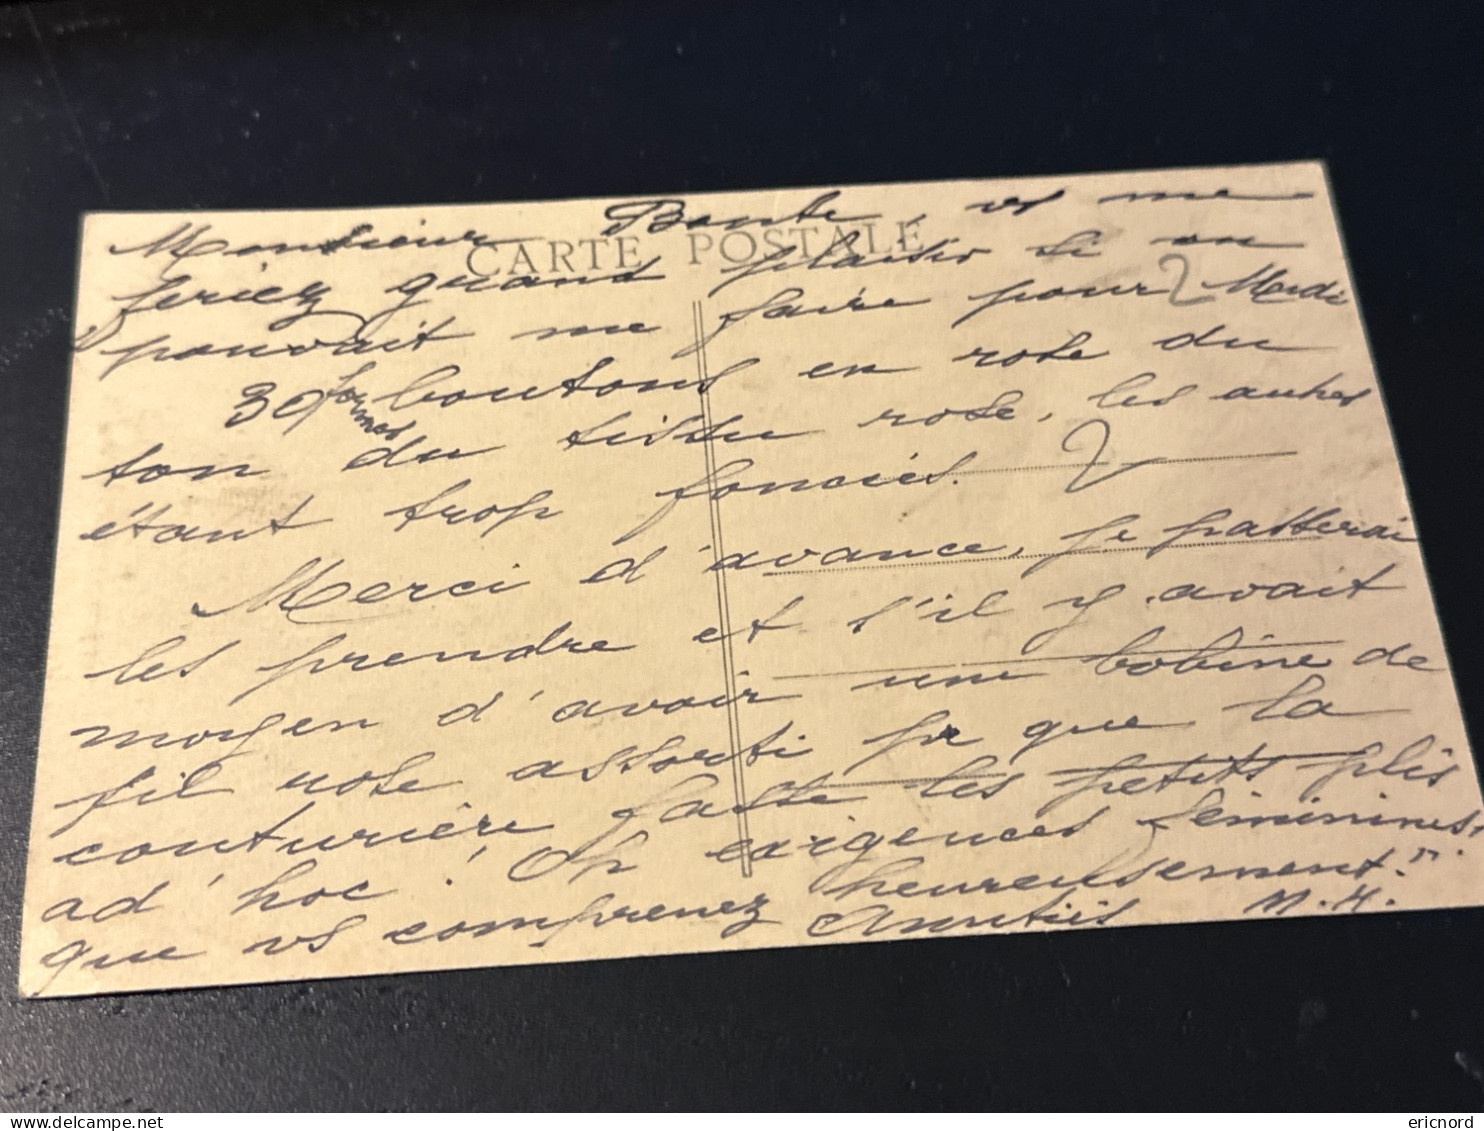 Monsieur Bonte, vs me
CARTE POSTALE
feriez grand plaisir si on
pouvait me faire pour Mardi
30 formes boutons en rose du
ton du tissu rose, les autres
étant trop foncés.
Merci d'avance, je passerai
les prendre et s'il y avait
moyen d'avoir une bobine de
fil rose assorti pr que la
couturière fasse les petits plis
ad'hoc. Oh exigences féminines
que vs comprenez heureusement.
Amitiés M.H.
ericnord